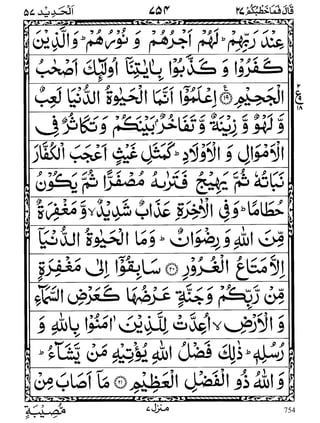 قَالَ فَمَا خَطْبُكُمْ ٢٧ ٧٥٤ اَلْحَدِيْد ٥٧
عِنْدَ رَبِّهِمْ ؕ لَهُمْ اَجْرُهُمْ وَ نُوْرُهُمْ ؕ وَالَّذِيْنَ
كَفَرُوْا وَ كَذَّبُوْا بِاٰيٰتِنَاۤ اُولٰٓئِكَ اَصْحٰبُ
الْجَحِيْمِ ﴿۱۹﴾ اِعْلَمُوْۤا اَنَّمَا الْحَيٰوةُ الدُّنْيَا لَعِبٌ
وَّ لَهْوٌ وَّ زِيْنَةٌ وَّ تَفَاخُرٌۢ بَيْنَكُمْ وَ تَكَاثُرٌ فِي
الْاَمْوَالِ وَ الْاَوْلَادِ ؕ كَمَثَلِ غَيْثٍ اَعْجَبَ الْكُفَّارَ
نَبَاتُهٗ ثُمَّ يَهِيْجُ فَتَرٰىهُ مُصْفَرًّا ثُمَّ يَكُوْنُ
حُطَامًا ؕ وَ فِي الْاٰخِرَةِ عَذَابٌ شَدِيْدٌ ۙ وَّ مَغْفِرَةٌ
مِّنَ اللّٰهِ وَ رِضْوَانٌ ؕ وَمَا الْحَيٰوةُ الدُّنْيَاۤ
اِلَّا مَتَاعُ الْغُرُوْرِ ﴿۲۰﴾ سَابِقُوْۤا اِلٰى مَغْفِرَةٍ
مِّنْ رَّبِّكُمْ وَ جَنَّةٍ عَرْضُهَا كَعَرْضِ السَّمَآءِ
وَ الْاَرْضِ ۙ اُعِدَّتْ لِلَّذِيْنَ اٰمَنُوْا بِاللّٰهِ وَ
رُسُلِهٖ ؕ ذٰلِكَ فَضْلُ اللّٰهِ يُؤْتِيْهِ مَنْ يَّشَآءُ ؕ
وَ اللّٰهُ ذُو الْفَضْلِ الْعَظِيْمِ ﴿۲۱﴾ مَاۤ اَصَابَ مِنْ
مُّصِيْبَةٍ
منزل ٧
754